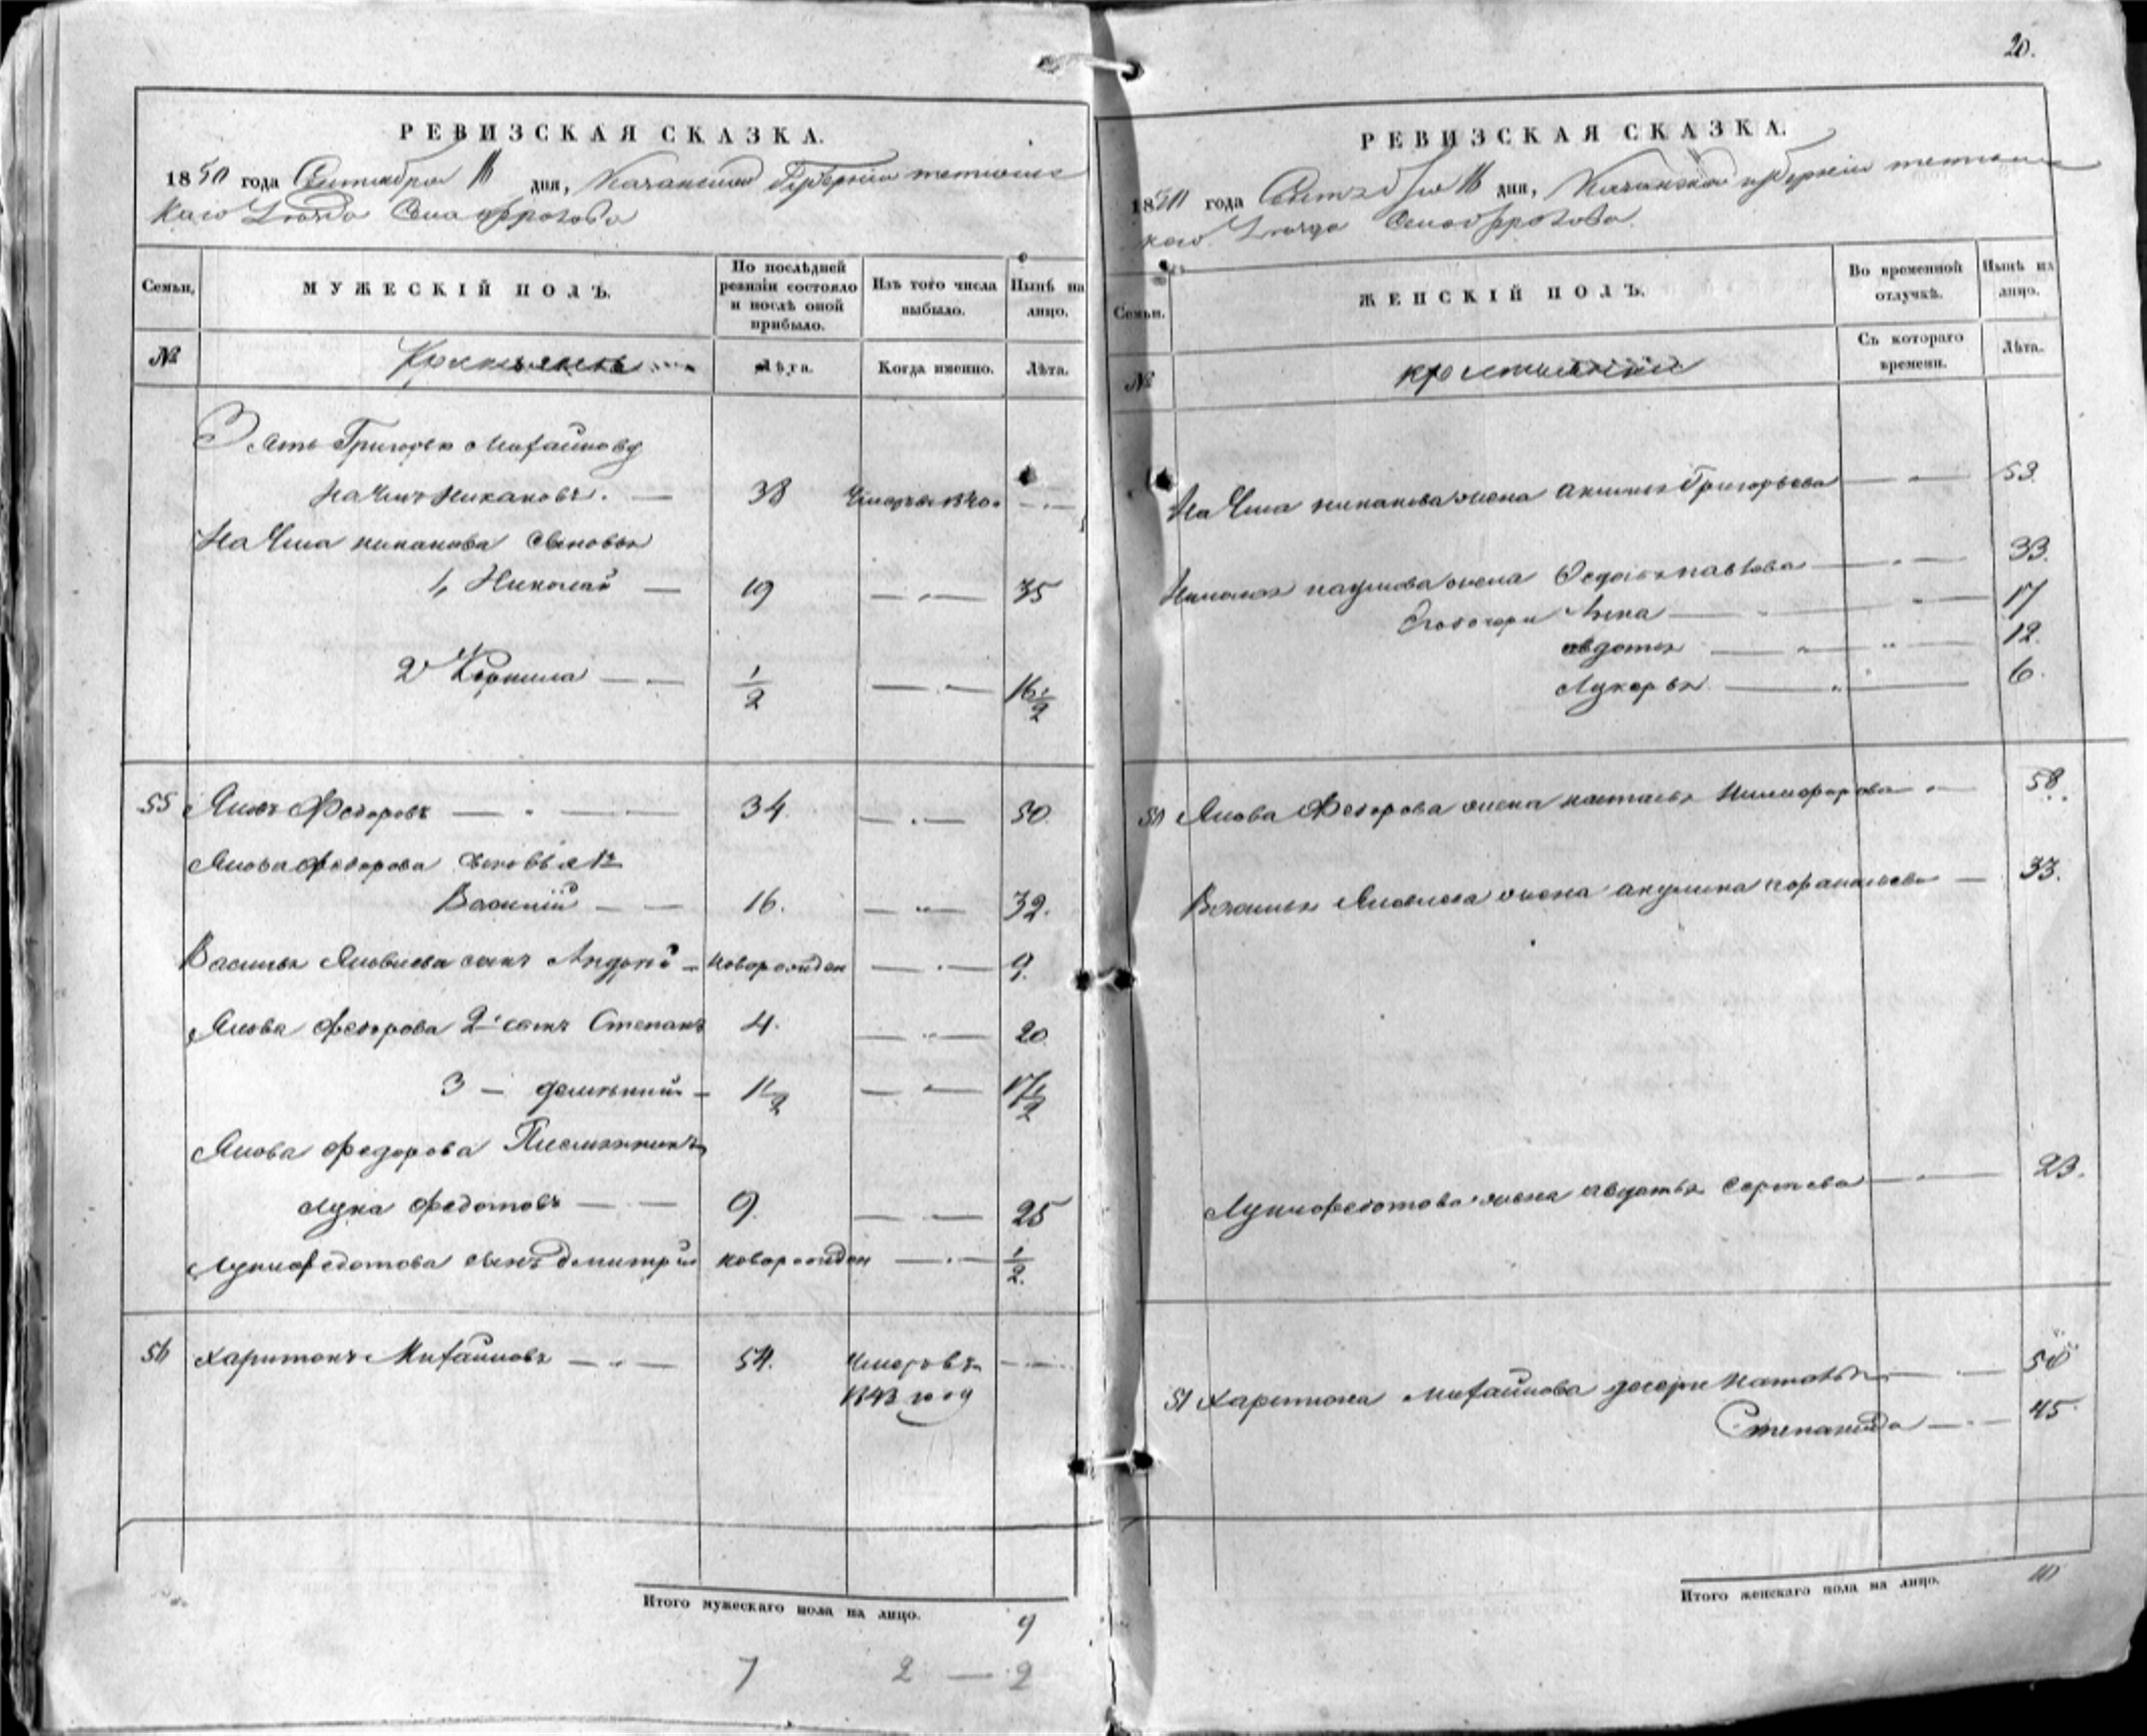 20.
РЕВИЗСКАЯ СКАЗКА.
1850 года Сентября 16 дня, Казанской Губернии тетюшс
каго Уезда Села Фролова
Семьи, МУЖЕСКІЙ ПОЛЪ. По послѣдней ревизіи состояло и послѣ оной прибыло. Изъ того числа выбыло. Нынѣ на лицо.
№ Крестьянъ Лѣта. Когда именно. Лѣта.
Зять Григорья Михайлова
Наумъ Никаноръ. — 38 Умеръ в 1840.
Наума никанова сыновья
1, Николай — 19 — " — 35
2й Корнила — — 1/2 — " — 16 1/2
55 Яковъ Федоровъ — " — 34. — " — 50.
Якова федорова сыновья 1й
Василий — — 16. — " — 32.
Василья Яковлева сынъ Андрей — новорожден — " — 9.
Якова федорова 2й сынъ Степанъ 4. — " — 20
3 — — 1 1/2 — " — 17 1/2
Якова федорова Племянникъ
лука федотовъ — — 9. — " — 25
луки федотова сынъ дмитрий новорожден — " — 1/2.
56 харитонъ Михайловъ — " — 54. Умеръ въ
1843 году
Итого мужескаго пола на лицо. 9
7 2 — 2
РЕВИЗСКАЯ СКАЗКА.
1850 года Сентября 16 дня, Казанской губерніи тетюшс
каго Уезда Села фролова
Семьи. ЖЕНСКІЙ ПОЛЪ. Во временной отлучкѣ. Нынѣ на лицо.
№ Съ котораго времени. Лѣта.
Наума никанова жена Григорьева — " — 53.
Николая наумова жена павлова — " — 33.
Его дочери Анна — " — 17
авдотья — " — 12.
лукерья — " — 6.
50 Якова Федорова жена настасья Никифорова " — 58.
Василья Яковлева жена акулина — 33.
Луки федотова жена авдотья сергеева — " — 23.
51 харитона михайлова дочери Наталья — " — 50
Степанида — " — 45.
Итого женскаго пола на лицо. 10